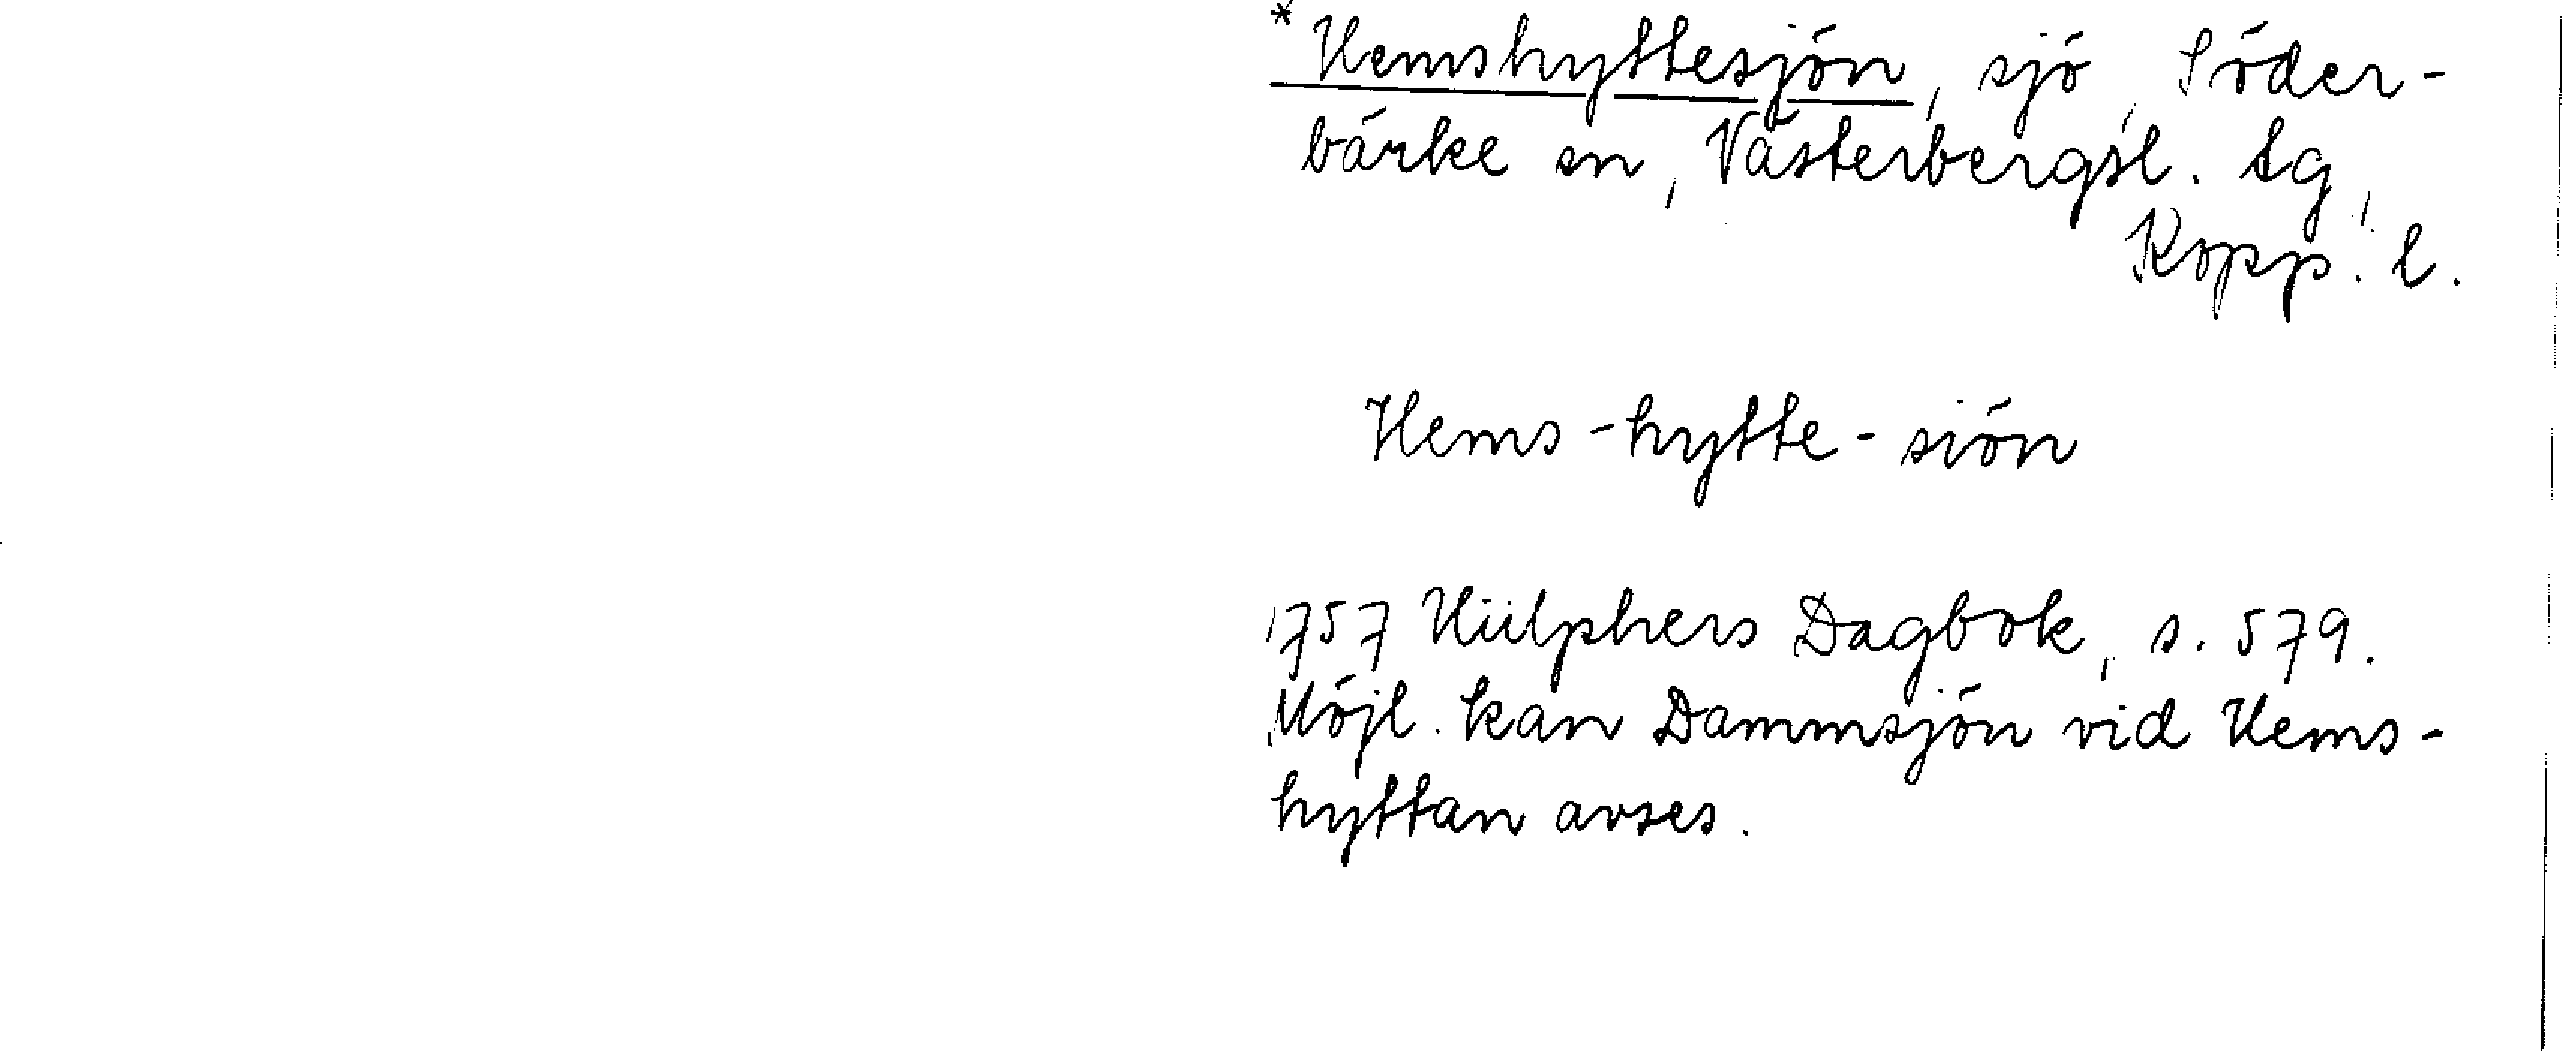 * Hemshyttesjön, sjö, Söder-
bärke sn, Västerbergsl. tg,
Kopp. l.
Hems-hytte-siön
1757 Hülphers Dagbok, s. 579.
Möjl. kan Dammsjön vid Hems-
hyttan avses.